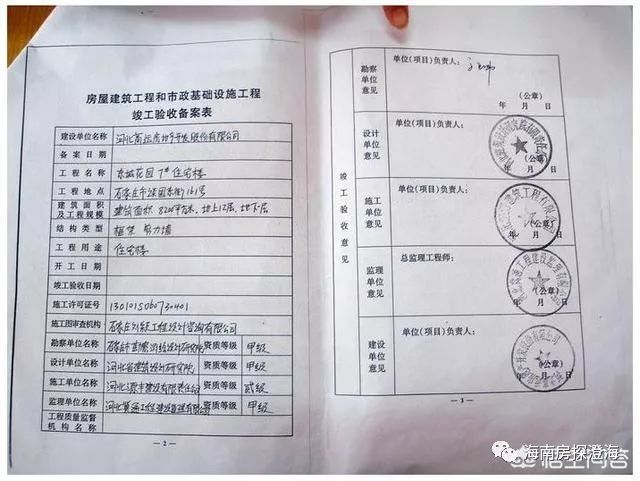 房屋建筑工程和市政基础设施工程
竣工验收备案表
建设单位名称 河北高远房地产开发股份有限公司
备案日期
工程名称 东城花园7#住宅楼
工程地点 石家庄市建国东街161号
建筑面积及工程规模 建筑面积 8200平方米、地上12层、地下层
结构类型 框架 剪力墙
工程用途 住宅楼
开工日期
竣工验收日期
施工许可证号 1301015060730401
施工图审查机构 工程设计咨询有限公司
勘察单位名称 石家庄市勘察设计研究院 资质等级 甲级
设计单位名称 河北省建筑设计研究院 资质等级 甲级
施工单位名称 河北建设有限责任公司 资质等级 贰级
监理单位名称 河北工程建设监理有限公司 资质等级 甲级
工程质量监督机构名称
— 2 —
竣工验收意见
勘察单位意见
单位(项目)负责人：
(公章)
年 月 日
设计单位意见
单位(项目)负责人：
(公章)
年 月 日
施工单位意见
单位(项目)负责人：
(公章)
年 月 日
监理单位意见
总监理工程师：
(公章)
年 月 日
建设单位意见
单位(项目)负责人：
(公章)
年 月 日
— 3 —
海南房探澄海
悟空问答